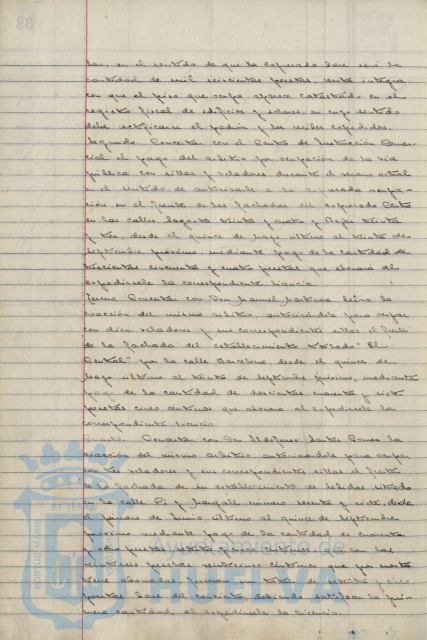 lar, en el sentido de que la expresada base sea la
cantidad de mil seiscientas pesetas, renta íntegra
con que el piso que ocupa aparece catastrado en el
registro fiscal de edificios y solares, en cuyo sentido
debe rectificarse el padrón y los recibos expedidos.
Segundo. Concertar con el Centro de Instrucción Comer-
cial el pago del arbitrio por ocupación de la vía
pública con sillas y veladores durante el verano actual
en el sentido de autorizarle a la ocupa-
ción en el frente de las fachadas del expresado Centro
en las calles Sagasta treinta y cuatro y Rascón treinta
y tres, desde el quince de Mayo último al treinta de
Septiembre próximo, mediante pago de la cantidad de
trescientas cincuenta y cuatro pesetas que abonará al
expedírsele la correspondiente licencia
Tercero. Concertar con Don Manuel Martínez la
exacción del mismo arbitrio, autorizándole para ocupar
con diez veladores y sus correspondientes sillas el frente
de la fachada del establecimiento titulado "El
Central" por la calle Barcelona, desde el quince de
Mayo último al treinta de Septiembre próximo, mediante
pago de la cantidad de doscientas cuarenta y siete
pesetas cinco céntimos que abonará al expedírsele la
correspondiente licencia
Cuarto. Concertar con Don Ildefonso Santos Gómez la
exacción del mismo arbitrio, autorizándole para ocupar
con tres veladores y sus correspondientes sillas el frente
de la fachada de su establecimiento de bebidas situado
en la calle Pí y Margall número veinte y siete, desde
el primero de Junio último al quince de Septiembre
próximo mediante pago de la cantidad de cincuenta
y pesetas céntimos con las
veintiséis pesetas veinticinco céntimos que ya
tiene abonadas forman un total de setenta y cinco
pesetas base del concierto, debiendo satisfacer la pri-
mera cantidad al expedírsele la licencia.
PORTUS MARIS
ET TERRAE
Ayuntamiento de
HUELVA